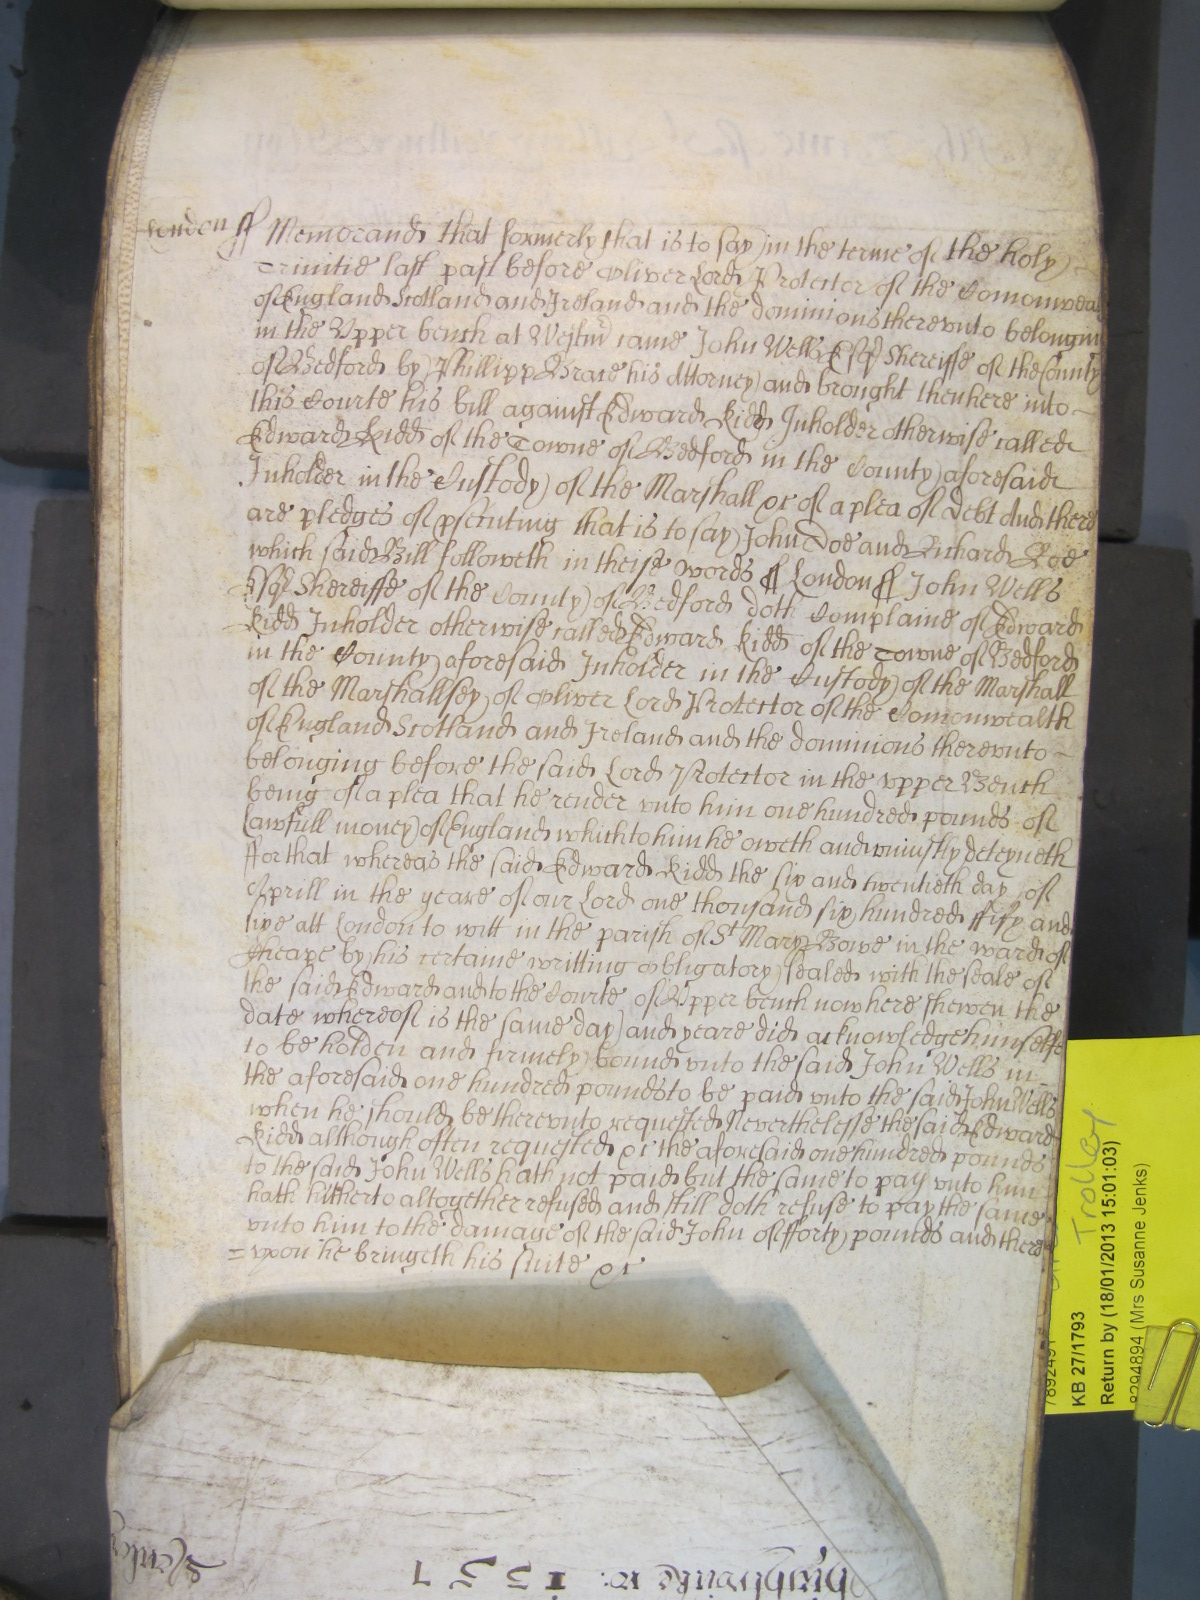 London ss Memorand that formerly that is to say in the terme of the holy
Trinitie last past before Oliver Lord Protector of the Comonwea
of England Scotland and Ireland and the dominions therevnto belongin
in the Vpper bench at Westmr came John Wells Esqr Shereiffe of the County
of Bedford by Phillipp Grace his Attorney and brought then here into
this Courte his bill against Edward Kidd Inholder otherwise called
Edward Kidd of the Towne of Bedford in the County aforesaid
Inholder in the Custody of the Marshall &c of a plea of Debt And there
are pledges of psecuting that is to say John Doe and Richard Roe
which said Bill followeth in theise words ss London ss John Wells
Esqr Shereiffe of the County of Bedford doth Complaine of Edward
Kidd Inholder otherwise called Edward Kidd of the Towne of Bedford
in the County aforesaid Inholder in the Custody of the Marshall
of the Marshallsey of Oliver Lord Protector of the Comonwealth
of England Scotland and Ireland and the dominions therevnto
belonging before the said Lord Protector in the vpper Bench
being of a plea that he render vnto him one hundred pounds of
lawfull money of England which to him he oweth and vniustly deteyneth
ffor that whereas the said Edward Kidd the six and twentieth day of
Aprill in the yeare of our Lord one thousand six hundred fifty and
five att London to witt in the parish of St Mary Bowe in the ward of
Cheape by his certaine writting obligatory sealed with the seale of
the said Edward and to the Courte of Vpper bench now here shewen the
date whereof is the same day and yeare did acknowledge himselfe
to be holden and firmely bound vnto the said John Wells in
the aforesaid one hundred pounds to be paid vnto the said John Wells
when he should be therevnto requested Neverthelesse the said Edward
Kidd although often requested &c the aforesaid one hundred pounds
to the said John Wells hath not paid but the same to pay vnto him
hath hitherto altogether refused and still doth refuse to pay the same
vnto him to the damage of the said John of fforty pounds and there
=vpon he bringeth his suite &c
Trolley
7892491
KB 27/1793
Return by (18/01/2013 15:01:03)
8294894 (Mrs Susanne Jenks)
ro: 1557